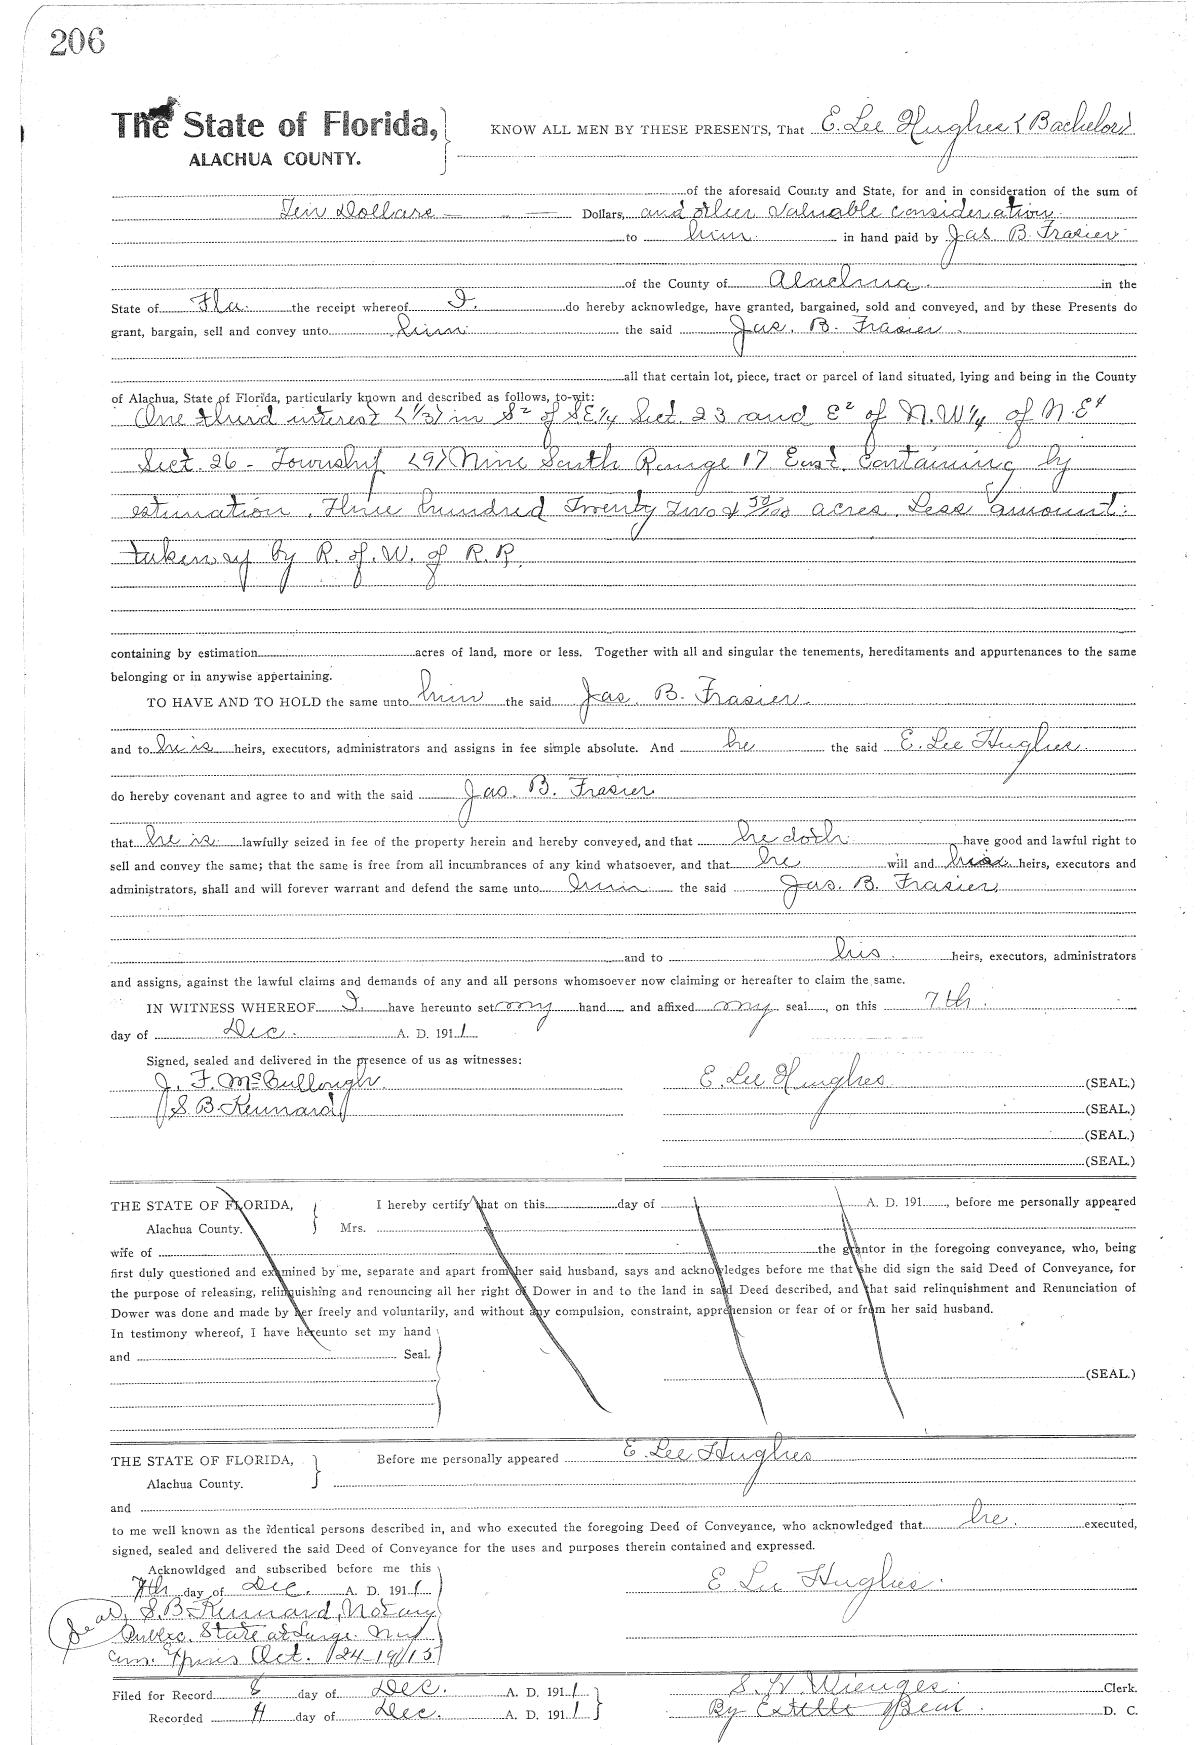 206
The State of Florida, KNOW ALL MEN BY THESE PRESENTS, That E. Lee Hughes (Bachelor)
ALACHUA COUNTY.
of the aforesaid County and State, for and in consideration of the sum of
Ten Dollars Dollars, and other valuable consideration
to him in hand paid by Jas B. Frasier
of the County of Alachua in the
State of Fla. the receipt whereof I. do hereby acknowledge, have granted, bargained, sold and conveyed, and by these Presents do
grant, bargain, sell and convey unto him the said Jas. B. Frasier
all that certain lot, piece, tract or parcel of land situated, lying and being in the County
of Alachua, State of Florida, particularly known and described as follows, to-wit:
One third interest (1/3) in S² of S.E.1/4 Sect. 23 and E² of N.W1/4 of N.E⁴
Sect. 26 - Township (9) Nine South Range 17 East. Containing by
estimation. Three hundred Twenty Two & 50/100 acres. Less amount
taken up by R. of. W. of R.R.
containing by estimation acres of land, more or less. Together with all and singular the tenements, hereditaments and appurtenances to the same
belonging or in anywise appertaining.
TO HAVE AND TO HOLD the same unto him the said Jas. B. Frasier.
and to his heirs, executors, administrators and assigns in fee simple absolute. And he the said E. Lee Hughes
do hereby covenant and agree to and with the said Jas. B. Frasier
that he is lawfully seized in fee of the property herein and hereby conveyed, and that he doth have good and lawful right to
sell and convey the same; that the same is free from all incumbrances of any kind whatsoever, and that he will and his heirs, executors and
administrators, shall and will forever warrant and defend the same unto him the said Jas. B. Frasier
and to his heirs, executors, administrators
and assigns, against the lawful claims and demands of any and all persons whomsoever now claiming or hereafter to claim the same.
IN WITNESS WHEREOF I. have hereunto set my hand and affixed my seal, on this 7th
day of Dec. A. D. 1911
Signed, sealed and delivered in the presence of us as witnesses:
J. F. McCullough E. Lee Hughes (SEAL.)
S. B. Kennard (SEAL.)
(SEAL.)
(SEAL.)
THE STATE OF FLORIDA, I hereby certify that on this day of A. D. 191 , before me personally appeared
Alachua County. Mrs.
wife of the grantor in the foregoing conveyance, who, being
first duly questioned and examined by me, separate and apart from her said husband, says and acknowledges before me that she did sign the said Deed of Conveyance, for
the purpose of releasing, relinquishing and renouncing all her right of Dower in and to the land in said Deed described, and that said relinquishment and Renunciation of
Dower was done and made by her freely and voluntarily, and without any compulsion, constraint, apprehension or fear of or from her said husband.
In testimony whereof, I have hereunto set my hand
and Seal.
(SEAL.)
THE STATE OF FLORIDA, Before me personally appeared E. Lee Hughes
Alachua County.
and
to me well known as the identical persons described in, and who executed the foregoing Deed of Conveyance, who acknowledged that he. executed,
signed, sealed and delivered the said Deed of Conveyance for the uses and purposes therein contained and expressed.
Acknowldged and subscribed before me this
7th day of Dec. A. D. 1911 E Lee Hughes.
Seal, S. B Kennard, Notary
Public. State at Large. My
com. Expires Oct. 24-1915
Filed for Record 8 day of Dec. A. D. 1911 S. H Wienges Clerk.
Recorded day of Dec. A. D. 1911 By Estelle Beat. D. C.